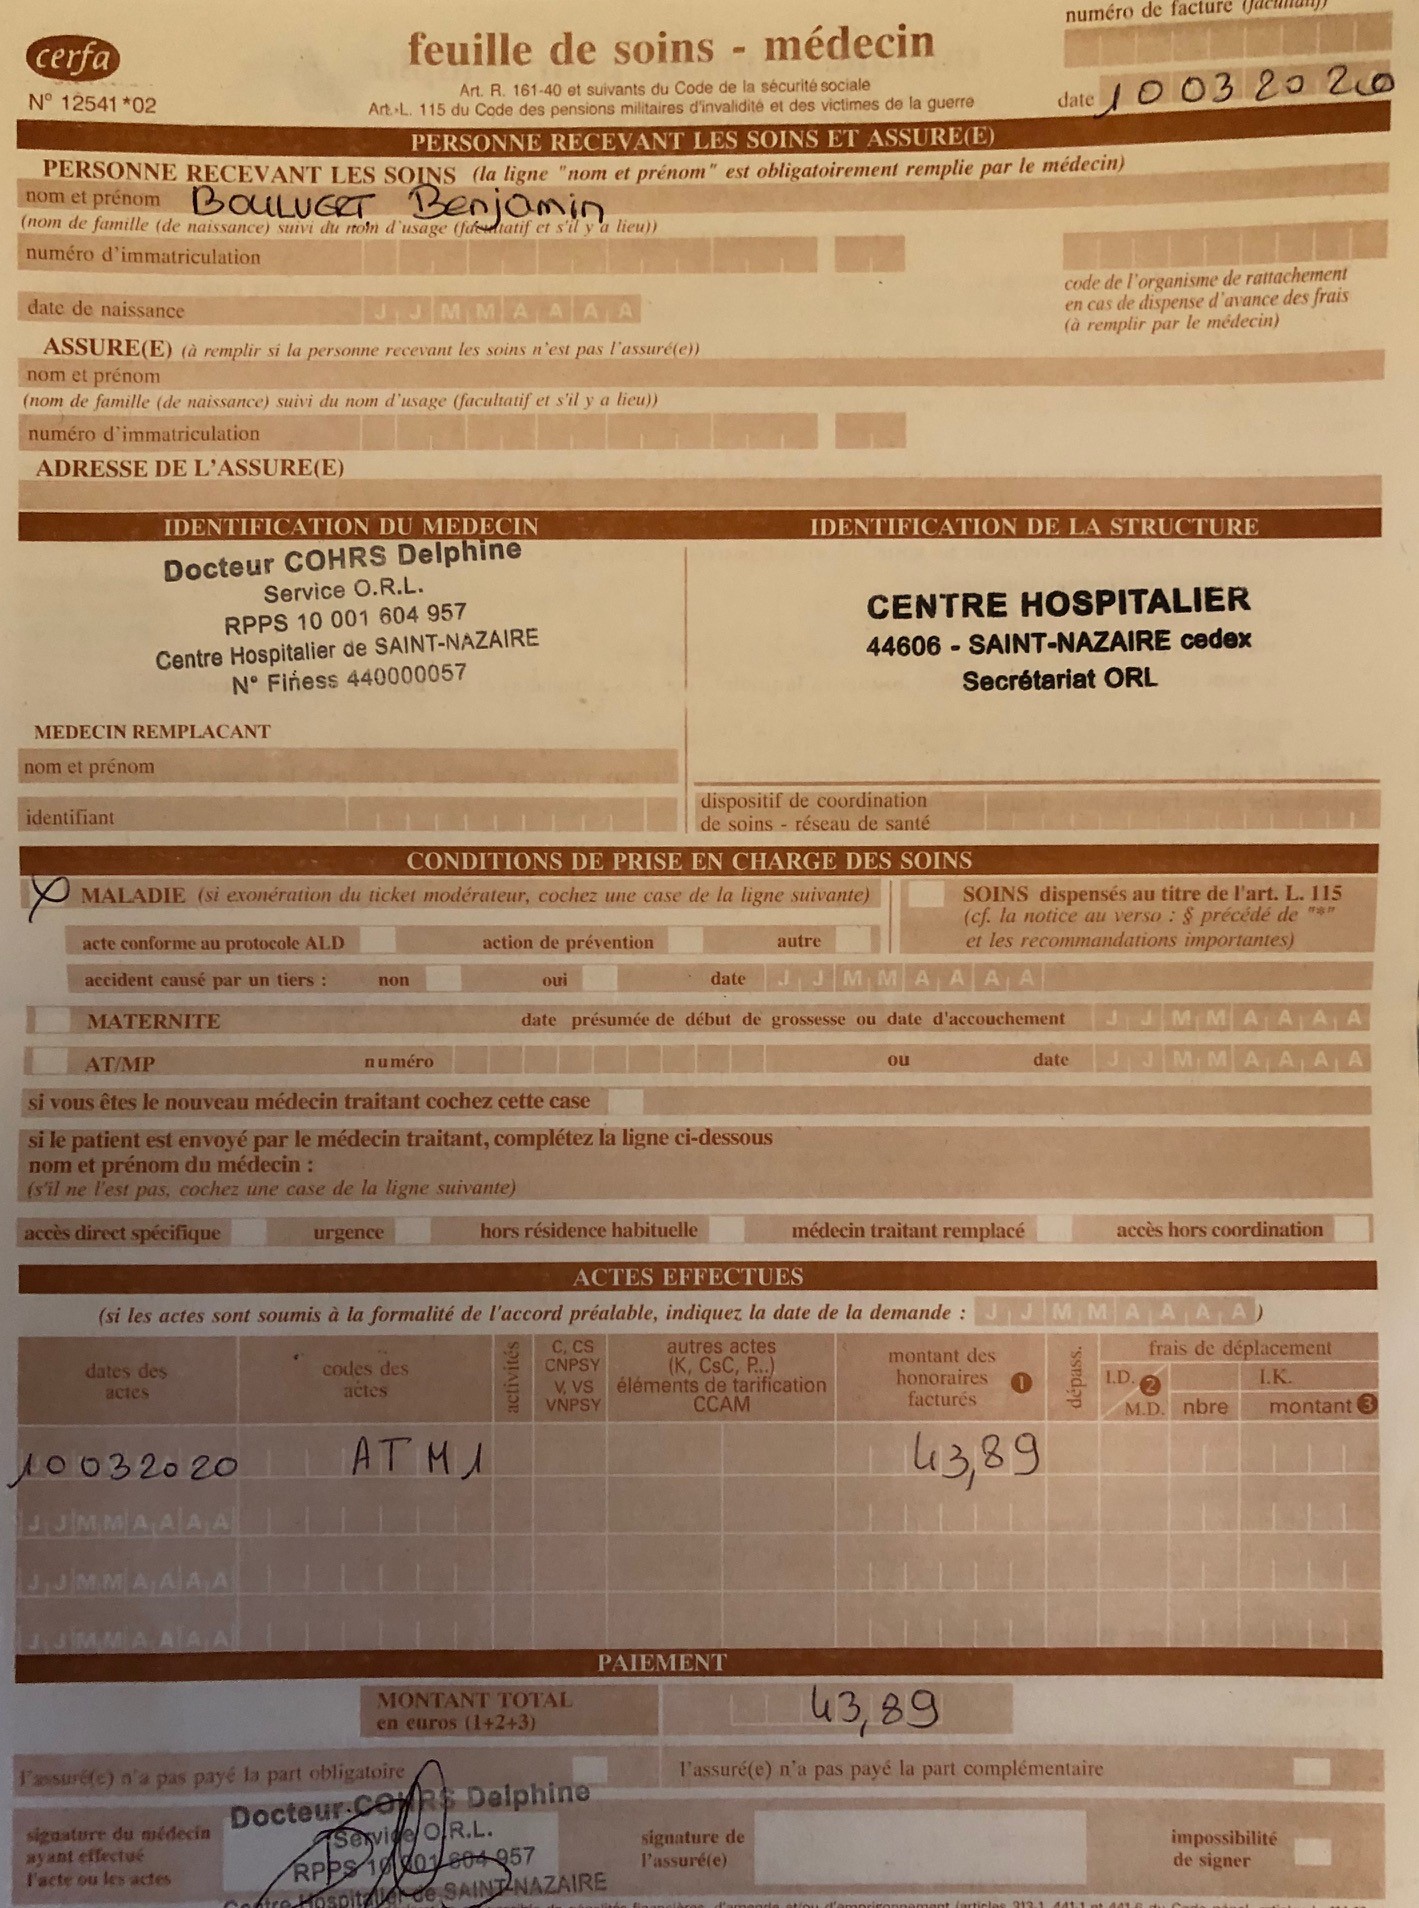 numéro de facture (facultatif)
cerfa
feuille de soins - médecin
N° 12541*02
Art. R. 161-40 et suivants du Code de la sécurité sociale
Art. L. 115 du Code des pensions militaires d'invalidité et des victimes de la guerre
date 10032020
PERSONNE RECEVANT LES SOINS ET ASSURE(E)
PERSONNE RECEVANT LES SOINS (la ligne "nom et prénom" est obligatoirement remplie par le médecin)
nom et prénom BOULVERT Benjamin
(nom de famille (de naissance) suivi du nom d'usage (facultatif et s'il y a lieu))
numéro d'immatriculation
code de l'organisme de rattachement
en cas de dispense d'avance des frais
(à remplir par le médecin)
date de naissance J J M M A A A A
ASSURE(E) (à remplir si la personne recevant les soins n'est pas l'assuré(e))
nom et prénom
(nom de famille (de naissance) suivi du nom d'usage (facultatif et s'il y a lieu))
numéro d'immatriculation
ADRESSE DE L'ASSURE(E)
IDENTIFICATION DU MEDECIN
Docteur COHRS Delphine
Service O.R.L.
RPPS 10 001 604 957
Centre Hospitalier de SAINT-NAZAIRE
N° Finess 440000057
IDENTIFICATION DE LA STRUCTURE
CENTRE HOSPITALIER
44606 - SAINT-NAZAIRE cedex
Secrétariat ORL
MEDECIN REMPLACANT
nom et prénom
identifiant
dispositif de coordination
de soins - réseau de santé
CONDITIONS DE PRISE EN CHARGE DES SOINS
X MALADIE (si exonération du ticket modérateur, cochez une case de la ligne suivante)
acte conforme au protocole ALD action de prévention autre
SOINS dispensés au titre de l'art. L. 115
(cf. la notice au verso : § précédé de "*"
et les recommandations importantes)
accident causé par un tiers : non oui date J J M M A A A A
MATERNITE date présumée de début de grossesse ou date d'accouchement J J M M A A A A
AT/MP numéro ou date J J M M A A A A
si vous êtes le nouveau médecin traitant cochez cette case
si le patient est envoyé par le médecin traitant, complétez la ligne ci-dessous
nom et prénom du médecin :
(s'il ne l'est pas, cochez une case de la ligne suivante)
accès direct spécifique urgence hors résidence habituelle médecin traitant remplacé accès hors coordination
ACTES EFFECTUES
(si les actes sont soumis à la formalité de l'accord préalable, indiquez la date de la demande : J J M M A A A A )
dates des
actes
codes des
actes
activités
C, CS
CNPSY
V, VS
VNPSY
autres actes
(K, CsC, P...)
éléments de tarification
CCAM
montant des
honoraires 1
facturés
dépass.
frais de déplacement
I.D. 2
M.D.
I.K.
nbre montant 3
10032020 ATM1 43,89
J J M M A A A A
J J M M A A A A
J J M M A A A A
PAIEMENT
MONTANT TOTAL
en euros (1+2+3)
43,89
l'assuré(e) n'a pas payé la part obligatoire
l'assuré(e) n'a pas payé la part complémentaire
signature du médecin
ayant effectué
l'acte ou les actes
Docteur COHRS Delphine
Service O.R.L.
RPPS 10 001 604 957
Centre Hospitalier de SAINT-NAZAIRE
signature de
l'assuré(e)
impossibilité
de signer